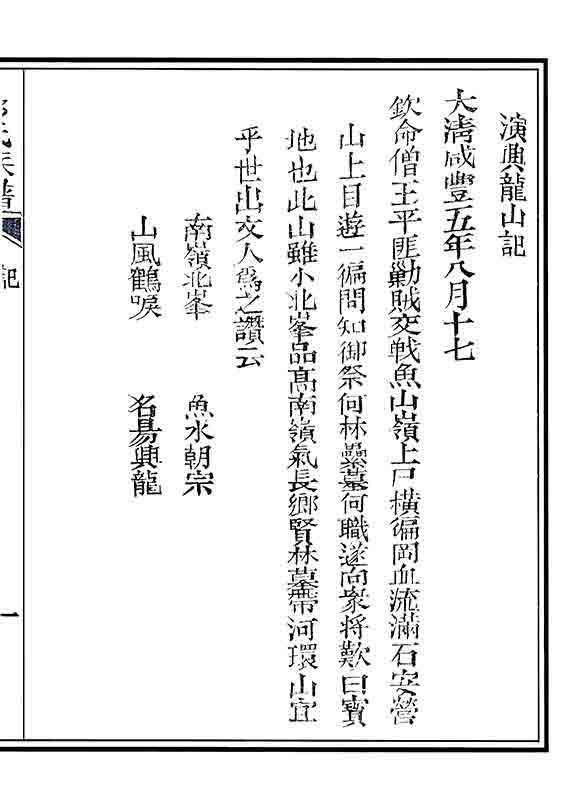 演興龍山記
大淸咸豐五年八月十七
欽命僧王平匪勦賊交戰魚山嶺上尸橫徧岡血流滿石安營
山上目遊一徧問知御祭何林纍墓何職遂向衆將歎曰寶
地也此山雖小北峯品高南嶺氣長鄉賢林墓帶河環山宜
乎世出文人爲之讚云
南嶺北峯 魚水朝宗
山風鶴唳 名昜興龍
氏族譜
記
一